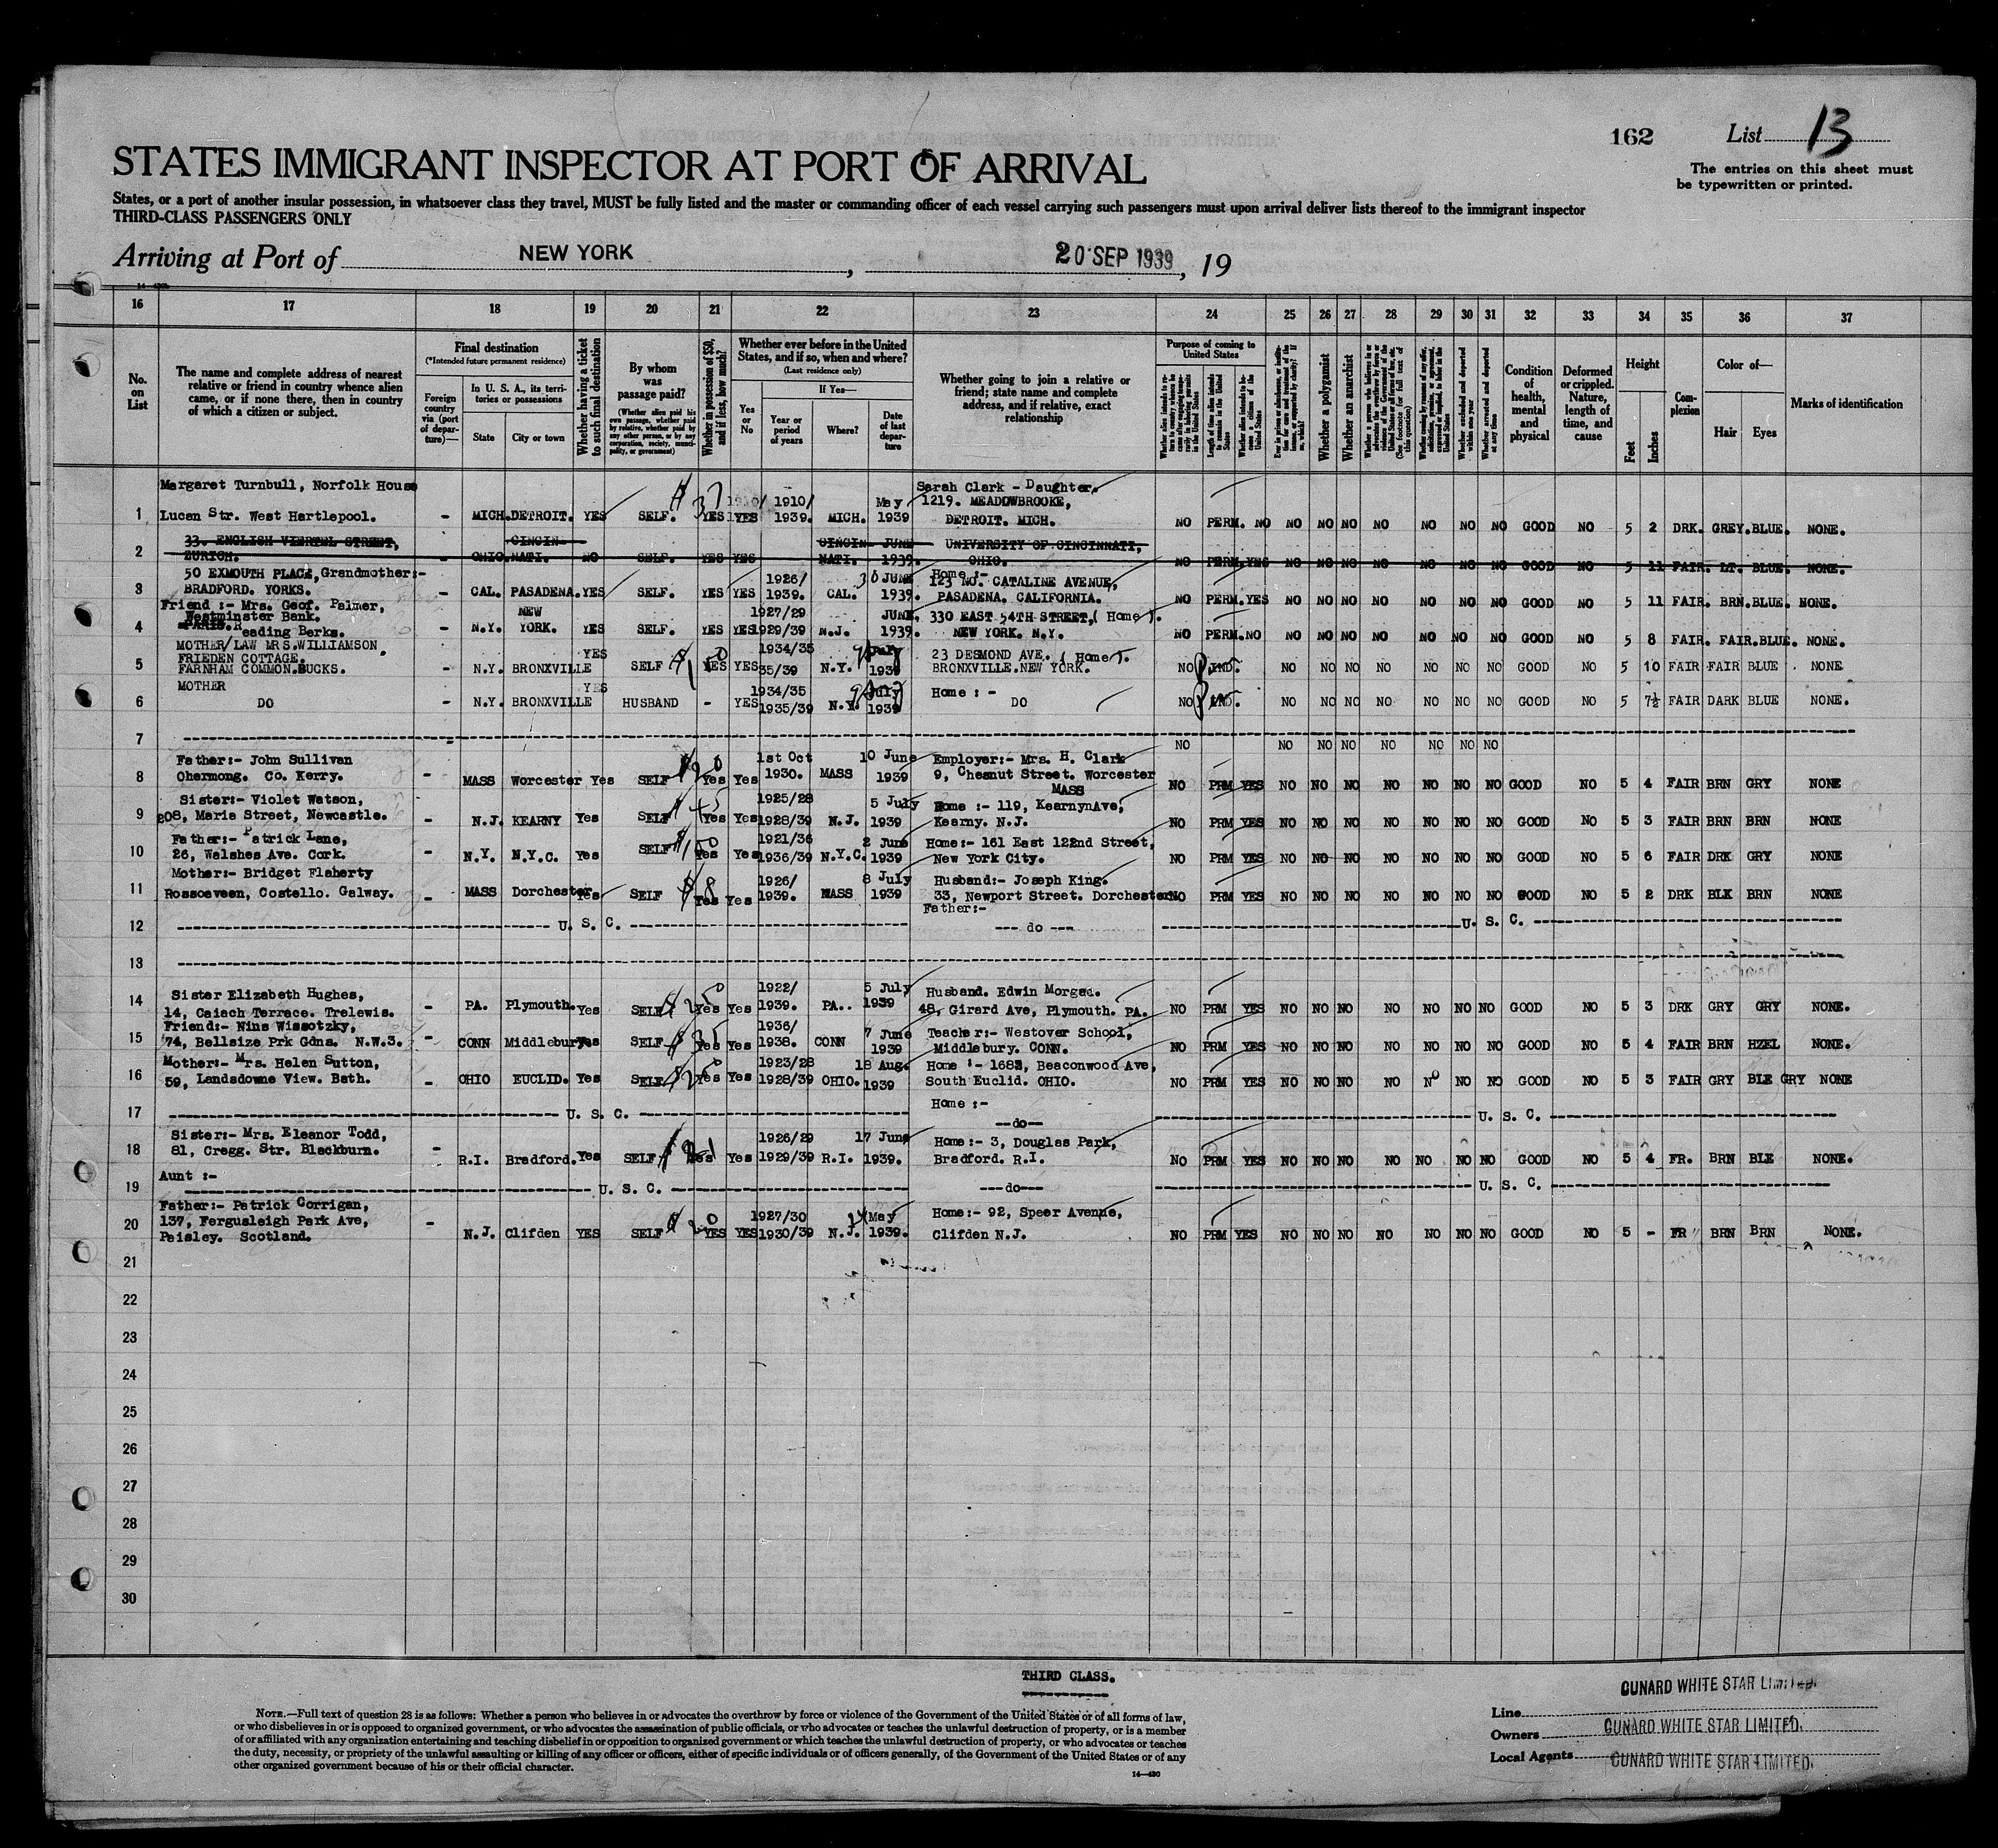 162 List 13
The entries on this sheet must
be typewritten or printed.
STATES IMMIGRANT INSPECTOR AT PORT OF ARRIVAL
States, or a port of another insular possession, in whatsoever class they travel, MUST be fully listed and the master or commanding officer of each vessel carrying such passengers must upon arrival deliver lists thereof to the immigrant inspector
THIRD-CLASS PASSENGERS ONLY
Arriving at Port of NEW YORK , 20 SEP 1939 , 19
16 17 18 19 20 21 22 23 24 25 26 27 28 29 30 31 32 33 34 35 36 37
No. on List
The name and complete address of nearest relative or friend in country whence alien came, or if none there, then in country of which a citizen or subject.
Final destination
(*Intended future permanent residence)
Foreign country via (port of departure)—
In U. S. A., its territories or possessions
State City or town
Whether having a ticket to such final destination
By whom was passage paid?
(Whether alien paid his own passage, whether paid by relative, whether paid by any other person, or by any corporation, society, municipality, or government)
Whether in possession of $50, and if less, how much?
Whether ever before in the United States, and if so, when and where?
(Last residence only)
Yes or No
If Yes—
Year or period of years Where? Date of last departure
Whether going to join a relative or friend; state name and complete address, and if relative, exact relationship
Purpose of coming to United States
Whether a polygamist
Whether an anarchist
Condition of health, mental and physical
Deformed or crippled. Nature, length of time, and cause
Height
Feet Inches
Complexion
Color of—
Hair Eyes
Marks of identification
Margaret Turnbull, Norfolk House $37 1910/ May Sarah Clark - Daughter.
1219. MEADOWBROOKE,
1 Lucan Str. West Hartlepool. - MICH. DETROIT. YES SELF. YES YES 1939. MICH. 1939 DETROIT. MICH. NO PERM. NO NO NO NO NO NO NO NO GOOD NO 5 2 DRK. GREY. BLUE. NONE.
33. ENGLISH VIERTEL STREET, CINCIN- CINCIN- JUNE UNIVERSITY OF CINCINNATI,
2 ZURICH. - OHIO. NATI. NO SELF. YES YES NATI. 1939. OHIO. NO PERM. YES NO NO NO NO NO NO NO GOOD NO 5 11 FAIR. LT. BLUE. NONE.
50 EXMOUTH PLACE, Grandmother:- 1926/ 30 JUNE Home :- 123 NO. CATALINE AVENUE,
3 BRADFORD. YORKS. - CAL. PASADENA. YES SELF. YES YES 1939. CAL. 1939. PASADENA. CALIFORNIA. NO PERM. YES NO NO NO NO NO NO NO GOOD NO 5 11 FAIR. BRN. BLUE. NONE.
Friend :- Mrs. Geof. Palmer,
Westminster Bank. NEW 1927/29 JUNE. 330 EAST 54TH STREET,( Home ).
4 Reading Berks. - N.Y. YORK. YES SELF. YES YES 1929/39 N.J. 1939. NEW YORK. N.Y. NO PERM. NO NO NO NO NO NO NO NO GOOD NO 5 8 FAIR. FAIR. BLUE. NONE.
MOTHER/LAW MRS.WILLIAMSON
FRIEDEN COTTAGE. YES $ 1934/35 July 23 DESMOND AVE. ( Home ).
5 FARNHAM COMMON.BUCKS. - N.Y. BRONXVILLE SELF YES YES 35/39 N.Y. 1939 BRONXVILLE.NEW YORK. NO IND. NO NO NO NO NO NO NO GOOD NO 5 10 FAIR FAIR BLUE . NONE
MOTHER YES 1934/35 July Home : -
6 DO - N.Y. BRONXVILLE HUSBAND - YES 1935/39 N.Y. 1939 DO NO IND. NO NO NO NO NO NO NO GOOD NO 5 7½ FAIR DARK BLUE NONE.
7 NO NO NO NO NO NO NO NO
Father:- John Sullivan $20 1st Oct 10 June Employer:- Mrs. H. Clark
8 Ohermong. Co. Kerry. - MASS Worcester Yes SELF Yes Yes 1930. MASS 1939 9, Chesnut Street. Worcester MASS NO PRM YES NO NO NO NO NO NO NO GOOD NO 5 4 FAIR BRN GRY NONE
Sister:- Violet Watson, $45 1925/28 5 July Home :- 119, KearnynAve,
9 208, Marie Street, Newcastle. - N.J. KEARNY Yes SELF Yes Yes 1928/39 N.J. 1939 Kearny. N.J. NO PRM YES NO NO NO NO NO NO NO GOOD NO 5 3 FAIR BRN BRN NONE
Father:- Patrick Lane, 1921/36 2 June Home:- 161 East 122nd Street,
10 26, Walshes Ave. Cork. - N.Y. N.Y.C. Yes SELF Yes Yes 1936/39 N.Y.C. 1939 New York City. NO PRM YES NO NO NO NO NO NO NO GOOD NO 5 6 FAIR DRK GRY NONE
Mother:- Bridget Flaherty $8 1926/ 8 July Husband:- Joseph King.
11 Rossoeveen, Costello. Galway. - MASS Dorchester Yes SELF Yes Yes 1939. MASS 1939 33, Newport Street. Dorchester NO PRM YES NO NO NO NO NO NO NO GOOD NO 5 2 DRK BLK BRN NONE
Father:-
12 U. S. C. --- do --- U. S. C.
13
Sister Elizabeth Hughes, 1922/ 5 July Husband. Edwin Morgan.
14 14, Caiach Terrace. Trelewis. - PA. Plymouth. Yes SELF Yes Yes 1939. PA.. 1939 48, Girard Ave, Plymouth. PA. NO PRM YES NO NO NO NO NO NO NO GOOD NO 5 3 DRK GRY GRY NONE.
Friend:- Nina Wissotzky, $35 1936/ 7 June Teacher:- Westover School,
15 74, Bellsize Prk Gdns. N.W.3. - CONN Middlebury Yes SELF Yes Yes 1938. CONN 1939 Middlebury. CONN. NO PRM YES NO NO NO NO NO NO NO GOOD NO 5 4 FAIR BRN HZEL NONE.
Mother:- Mrs. Helen Sutton, 1923/28 18 Aug. Home :- 1683, Beaconwood Ave,
16 59, Landsdowne View. Bath. - OHIO EUCLID. Yes SELF Yes Yes 1928/39 OHIO. 1939 South Euclid. OHIO. NO PRM YES NO NO NO NO NO NO NO GOOD NO 5 3 FAIR GRY BLE GRY NONE
Home :-
17 U. S. C. --do-- U. S. C.
Sister:- Mrs. Eleanor Todd, 1926/29 17 June Home:- 3, Douglas Park,
18 81, Cregg. Str. Blackburn. - R.I. Bradford. Yes SELF Yes Yes 1929/39 R.I. 1939. Bradford. R.I. NO PRM YES NO NO NO NO NO NO NO GOOD NO 5 4 FR. BRN BLE NONE.
Aunt :-
19 U. S. C. --do-- U. S. C.
Father:- Patrick Corrigan, $20 1927/30 May Home:- 92, Speer Avenue,
20 137, Fergusleigh Park Ave, - N.J. Clifden YES SELF YES YES 1930/39 N.J. 1939. Clifden N.J. NO PRM YES NO NO NO NO NO NO NO GOOD NO 5 - FR BRN BRN NONE.
Paisley. Scotland.
21
22
23
24
25
26
27
28
29
30
THIRD CLASS.
NOTE.—Full text of question 28 is as follows: Whether a person who believes in or advocates the overthrow by force or violence of the Government of the United States or of all forms of law,
or who disbelieves in or is opposed to organized government, or who advocates the assassination of public officials, or who advocates or teaches the unlawful destruction of property, or is a member
of or affiliated with any organization entertaining and teaching disbelief in or opposition to organized government or which teaches the unlawful destruction of property, or who advocates or teaches
the duty, necessity, or propriety of the unlawful assaulting or killing of any officer or officers, either of specific individuals or of officers generally, of the Government of the United States or of any
other organized government because of his or their official character.
14—430
Line CUNARD WHITE STAR LIMITED.
Owners CUNARD WHITE STAR LIMITED.
Local Agents CUNARD WHITE STAR LIMITED.